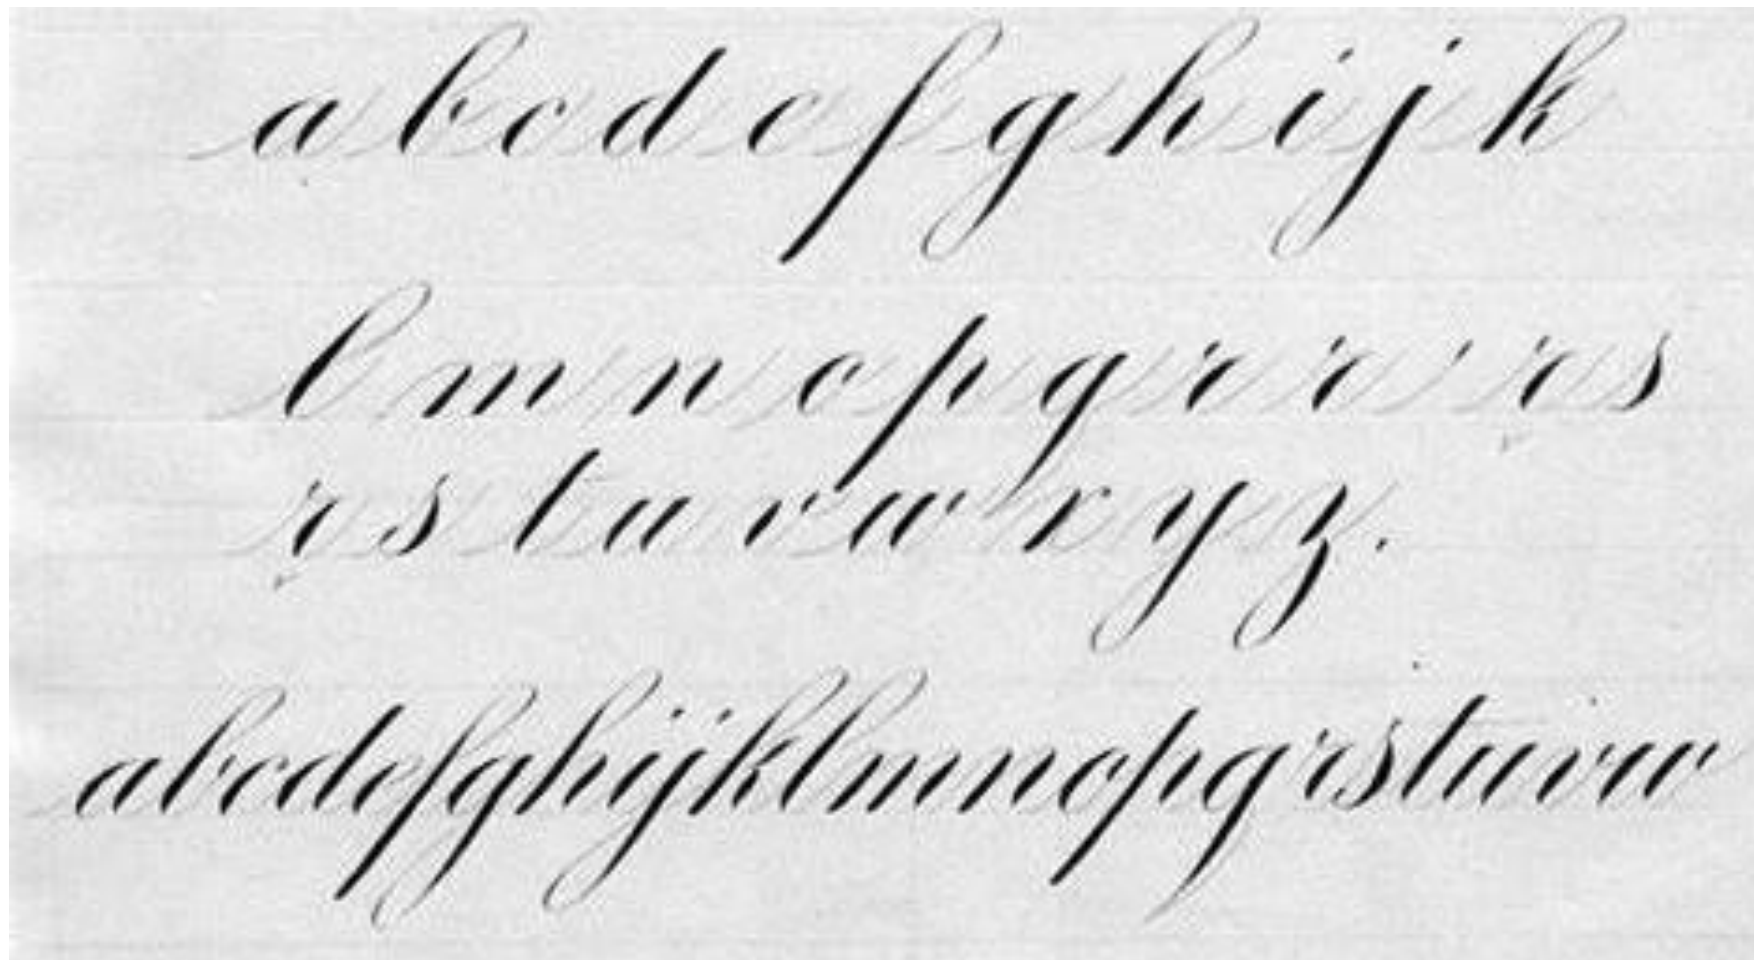 a b c d e f g h i j k
l m n o p q r r r s
r s t u v w x y z.
abcdefghijklmnopqrstuvw